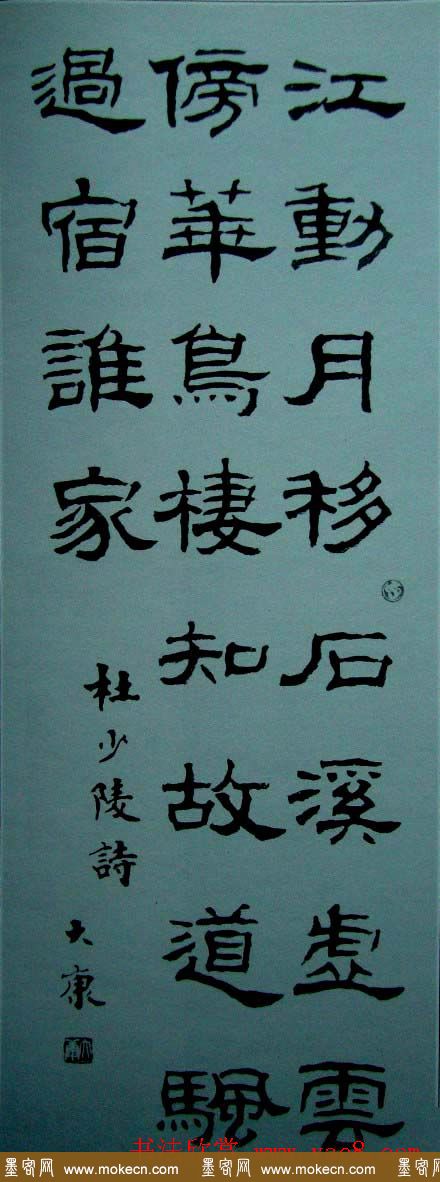 江動月移石溪虛雲
傍華鳥棲知故道颿
過宿誰家
杜少陵詩
大康
书法欣赏 www.yac8.com
墨客网 www.mokecn.com 墨客网 www.mokecn.com 墨客网